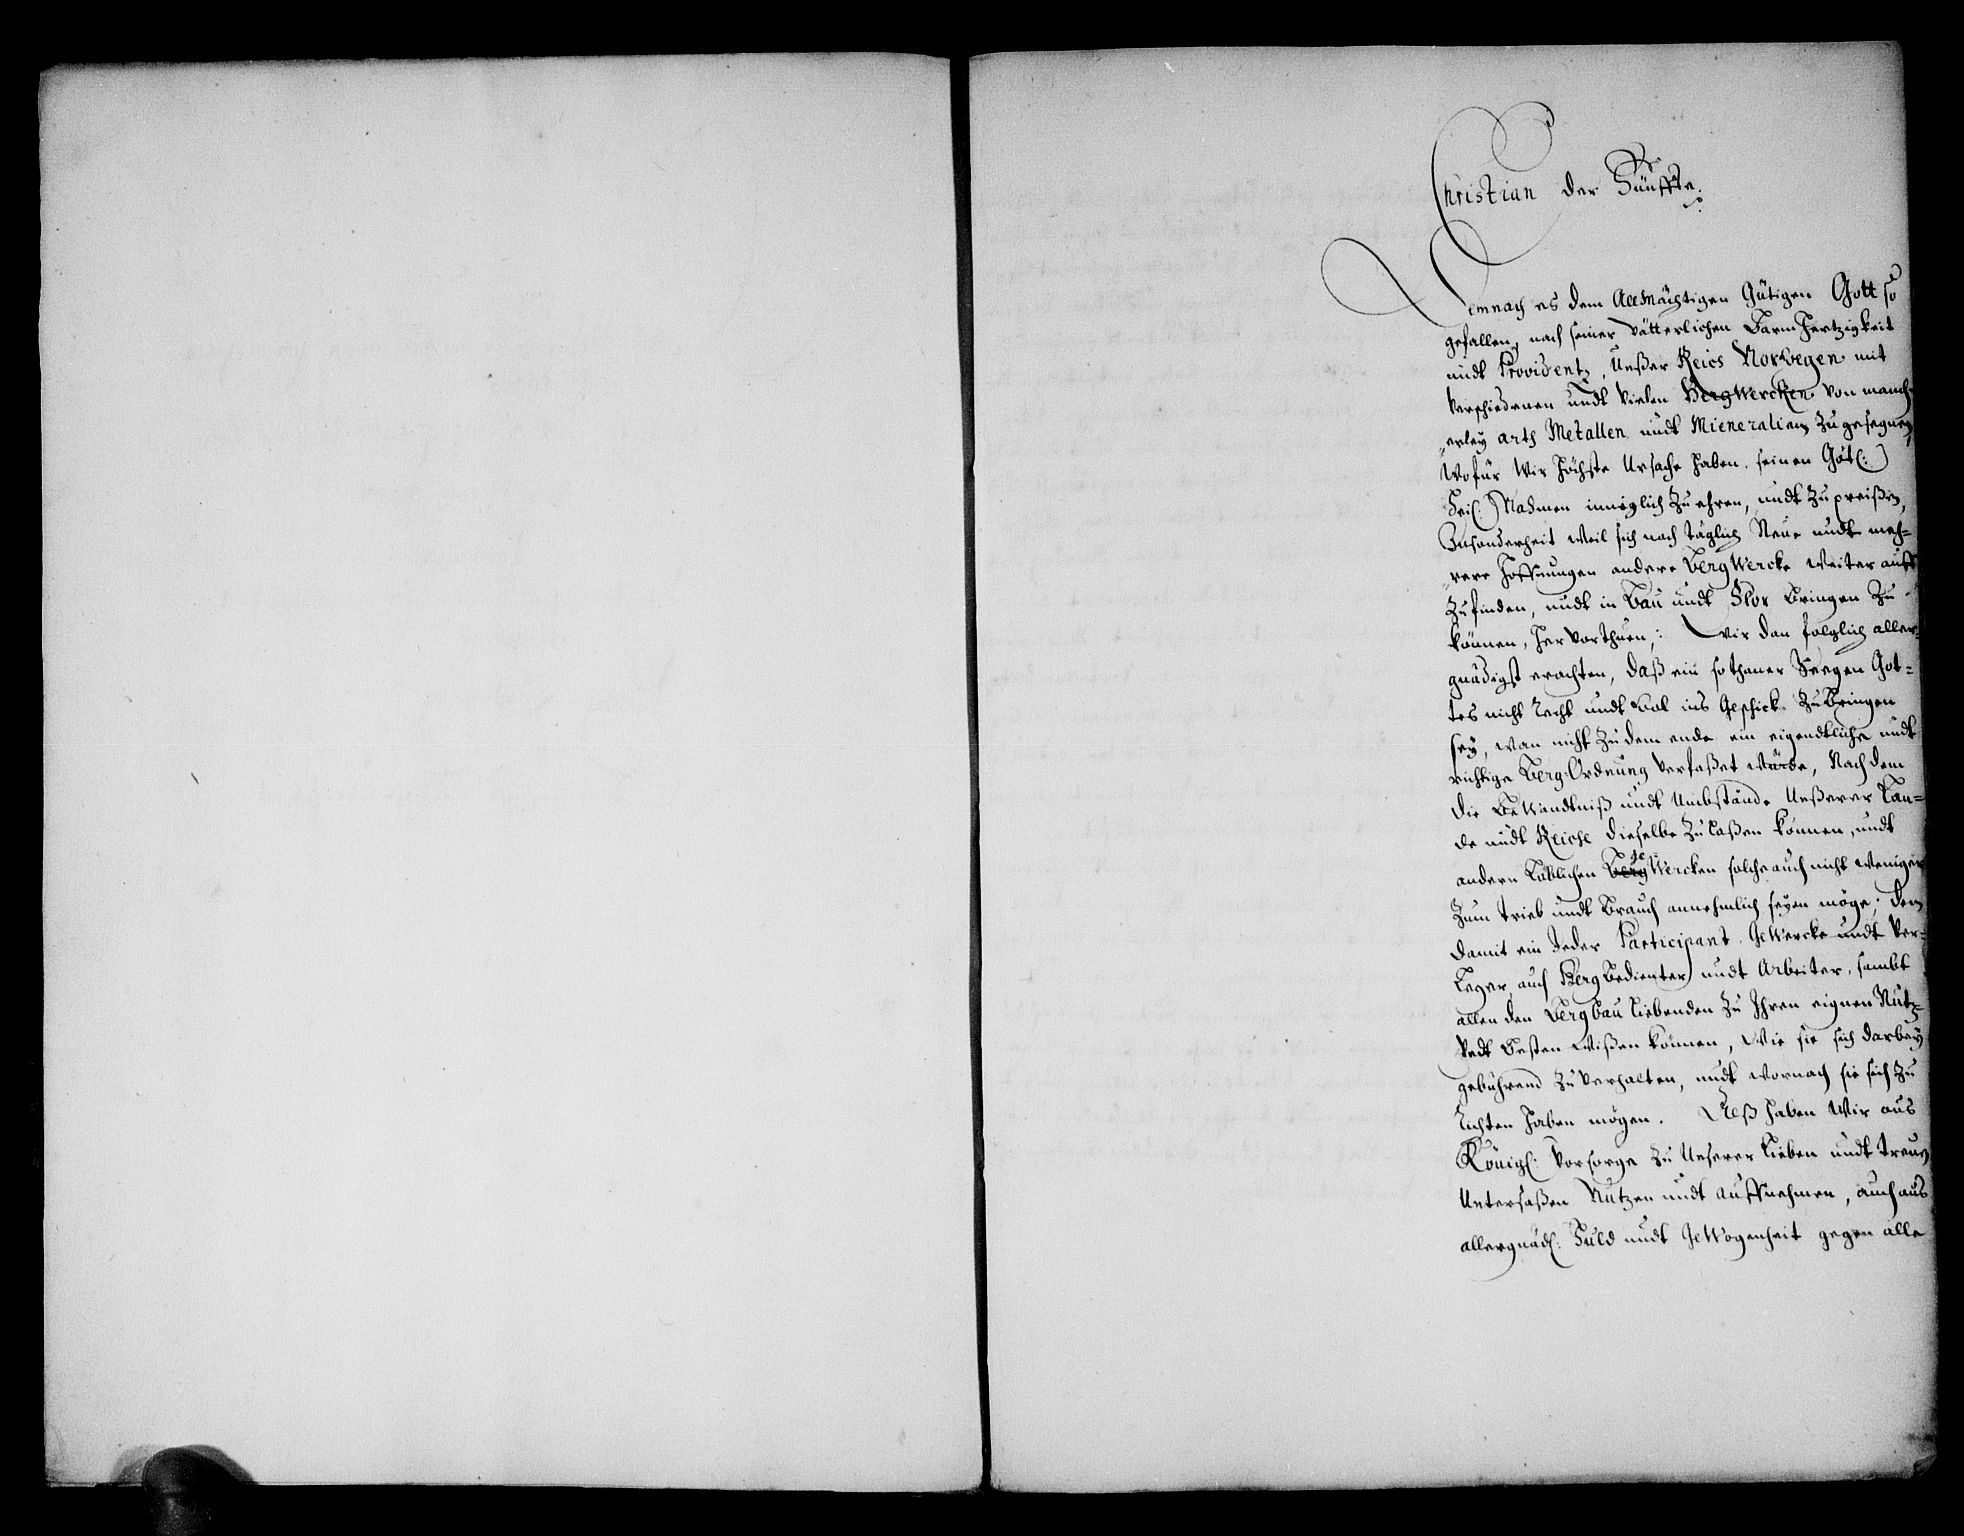 Christian der Fünffte.
Demnach es dem Allmächtigen Gütigen Gott so
gefallen, nach seiner Vätterlichen Barmhertzigkeit
undt Providentz, Unßer Reics Norwegen mit
verschiedenen undt vielen BergWercken von manch-
erley arth Metallen undt Mieneralien zu gesegnen,
Wofür Wir höchste Ursache haben, seinen Götl:
Heil: Nahmen inniglich zu ehren, undt zu preißen,
Insonderheit weil sich noch täglich Neue undt meh-
rere hoffnungen andere BergWercke weiter auff
zufinden, undt in Bau undt Flor bringen zu
können, hervorthuen; Wir dan folglich aller-
gnädigst erachten, daß ein sothaner Seegen Got-
tes nicht recht undt wol ins Geschick zu bringen
sey, wan nicht zu dem ende ein eigendtliche undt
richtige Berg-Ordnung verfaßet würde, Nach dem
die Bewandtniß undt Umbstände Unßerer Lan-
de undt Reiche dieselbe zulaßen können, undt
andern Löblichen Berg Ge Wercken solche auch nicht weniger
zum trieb undt brauch annehmlich seyen möge; dem
damit ein Jeder Participant, GeWercke undt Ver-
leger, auch Bergbedienter undt Arbeiter, sambt
allen den Bergbau liebenden zu Ihren eignen Nutz
undt besten wißen können, Wie sie sich darbey
gebührend zu verhalten, undt wornach sie sich zu
richten haben mögen. Alß haben Wir aus
Königl: Vorsorge zu Unserer lieben undt treuen
Untersaßen Nutzen undt auffnehmen, auch aus
allergnädl: Huld undt GeWogenheit gegen alle